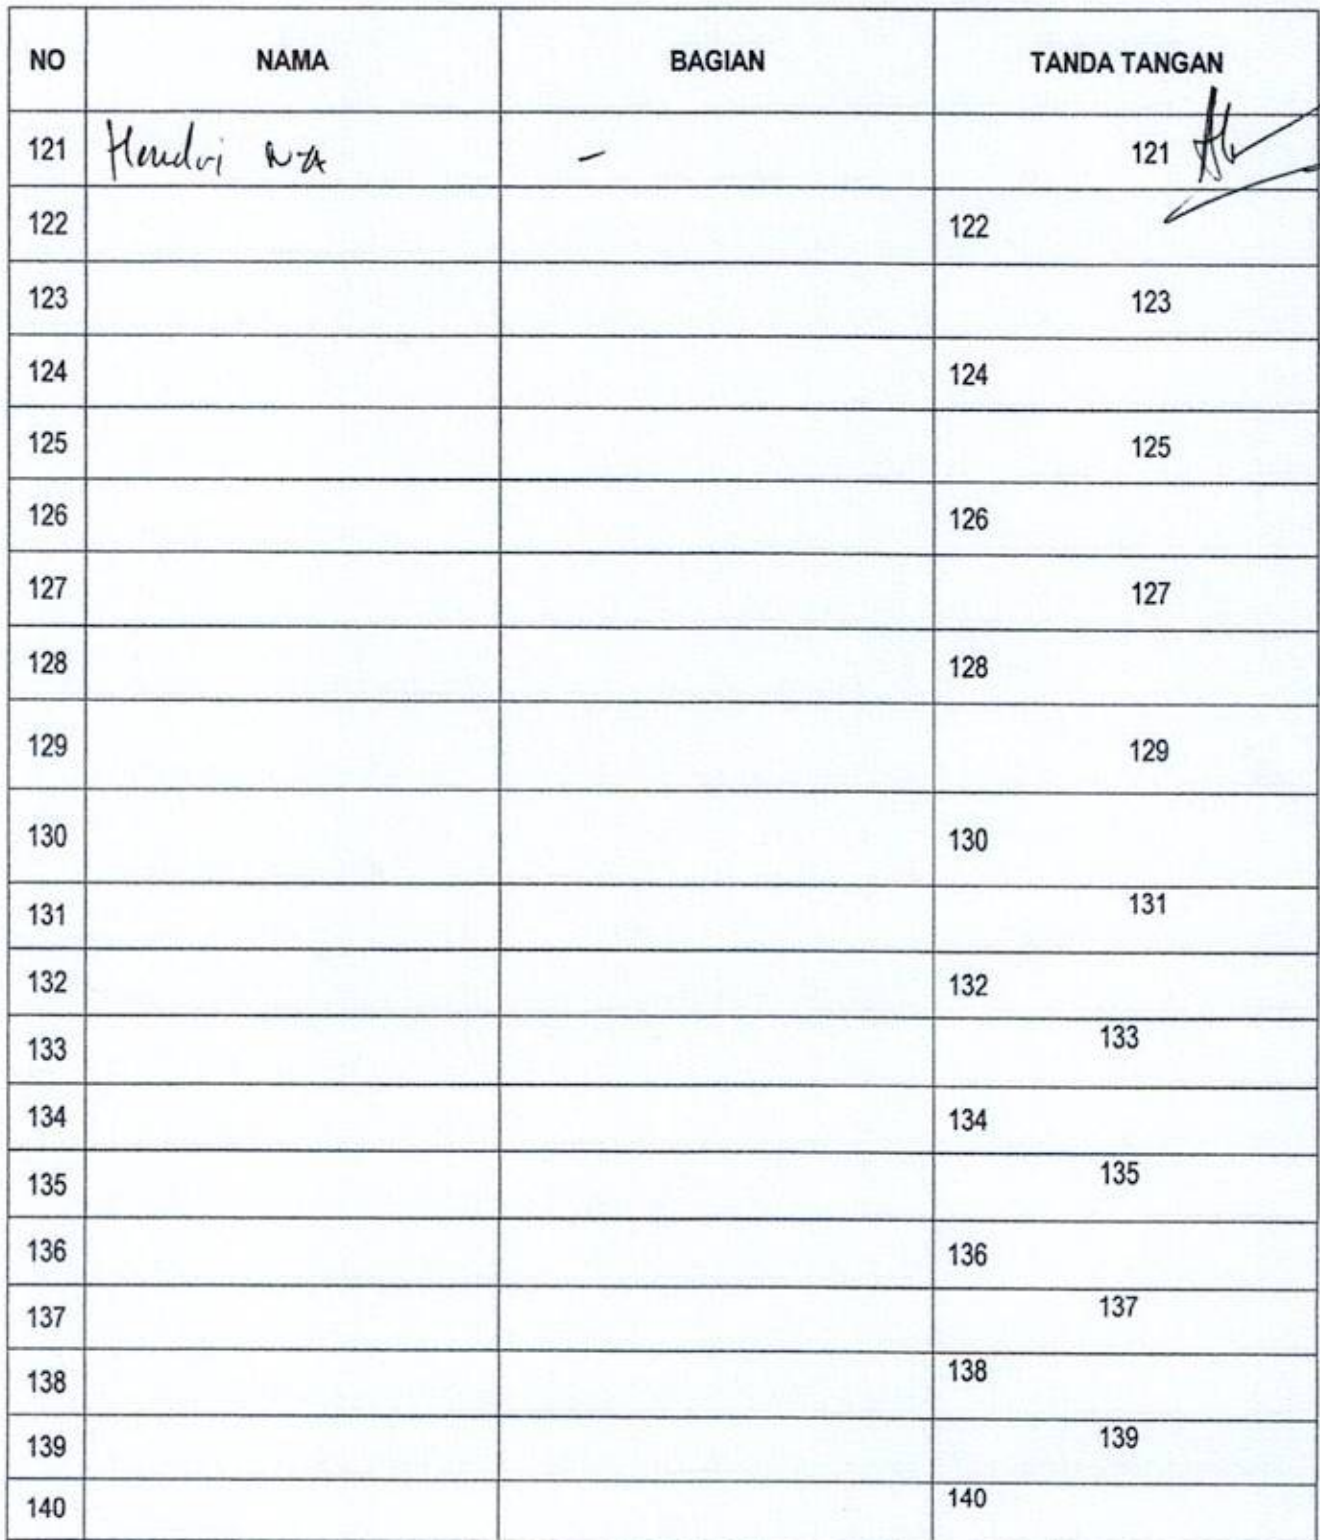 NO NAMA BAGIAN TANDA TANGAN
121 Hendri N-A - 121
122 122
123 123
124 124
125 125
126 126
127 127
128 128
129 129
130 130
131 131
132 132
133 133
134 134
135 135
136 136
137 137
138 138
139 139
140 140